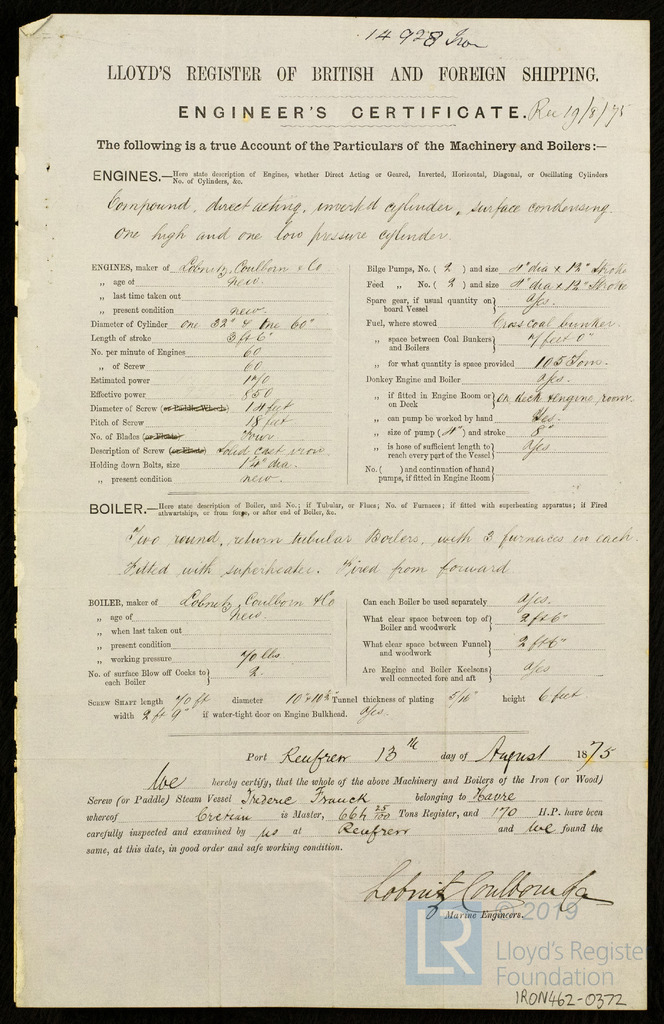 14928 Iron
LLOYD'S REGISTER OF BRITISH AND FOREIGN SHIPPING.
ENGINEER'S CERTIFICATE. Rec 19/8/75
The following is a true Account of the Particulars of the Machinery and Boilers:—
ENGINES.—Here state description of Engines, whether Direct Acting or Geared, Inverted, Horizontal, Diagonal, or Oscillating Cylinders
No. of Cylinders, &c.
Compound, direct acting, inverted cylinder, surface condensing.
One high and one low pressure cylinder.
ENGINES, maker of Lobnitz, Coulborn & Co
„ age of new.
„ last time taken out
„ present condition new.
Diameter of Cylinder one 32" & one 60"
Length of stroke 3 ft 6"
No. per minute of Engines 60
„ of Screw 60
Estimated power 170
Effective power 850
Diameter of Screw (or Paddle Wheel) 14 feet
Pitch of Screw 18 feet
No. of Blades (or Floats) Four
Description of Screw (or Floats) Solid cast iron.
Holding down Bolts, size 1¼" dia.
„ present condition new.
Bilge Pumps, No. ( 2 ) and size 4" dia x 12" Stroke
Feed „ No. ( 2 ) and size 4" dia x 12" Stroke
Spare gear, if usual quantity on board Vessel } Yes.
Fuel, where stowed Cross coal bunker.
„ space between Coal Bunkers and Boilers } 7 feet 0"
„ for what quantity is space provided 105 Tons.
Donkey Engine and Boiler Yes.
„ if fitted in Engine Room or on Deck } On deck & engine room.
„ can pump be worked by hand Yes.
„ size of pump ( 4" ) and stroke 8"
„ is hose of sufficient length to reach every part of the Vessel } Yes
No. ( ) and continuation of hand pumps, if fitted in Engine Room }
BOILER.—Here state description of Boiler, and No.; if Tubular, or Flues; No. of Furnaces; if fitted with superheating apparatus; if Fired
athwartships, or from fore, or after end of Boiler, &c.
Two round, return tubular Boilers, with 3 furnaces in each.
Fitted with superheater. Fired from forward
BOILER, maker of Lobnitz, Coulborn & Co
„ age of New
„ when last taken out
„ present condition
„ working pressure 70 lbs
No. of surface Blow off Cocks to each Boiler } 2.
Can each Boiler be used separately Yes.
What clear space between top of Boiler and woodwork } 2 ft 6"
What clear space between Funnel and woodwork } 2 ft 6"
Are Engine and Boiler Keelsons well connected fore and aft } Yes
SCREW SHAFT length 70 ft diameter Tunnel thickness of plating 5/16" height 6 feet
width 2 ft 9" if water-tight door on Engine Bulkhead. Yes.
Port Renfrew 13th day of August 1875
We hereby certify, that the whole of the above Machinery and Boilers of the Iron (or Wood)
Screw (or Paddle) Steam Vessel Frederic Franck belonging to Havre
whereof is Master, 664 25/100 Tons Register, and 170 H.P. have been
carefully inspected and examined by us at Renfrew and we found the
same, at this date, in good order and safe working condition.
Lobnitz Coulborn & Co
Marine Engineers.
LR
© 2019
Lloyd's Register
Foundation
IRON462-0372